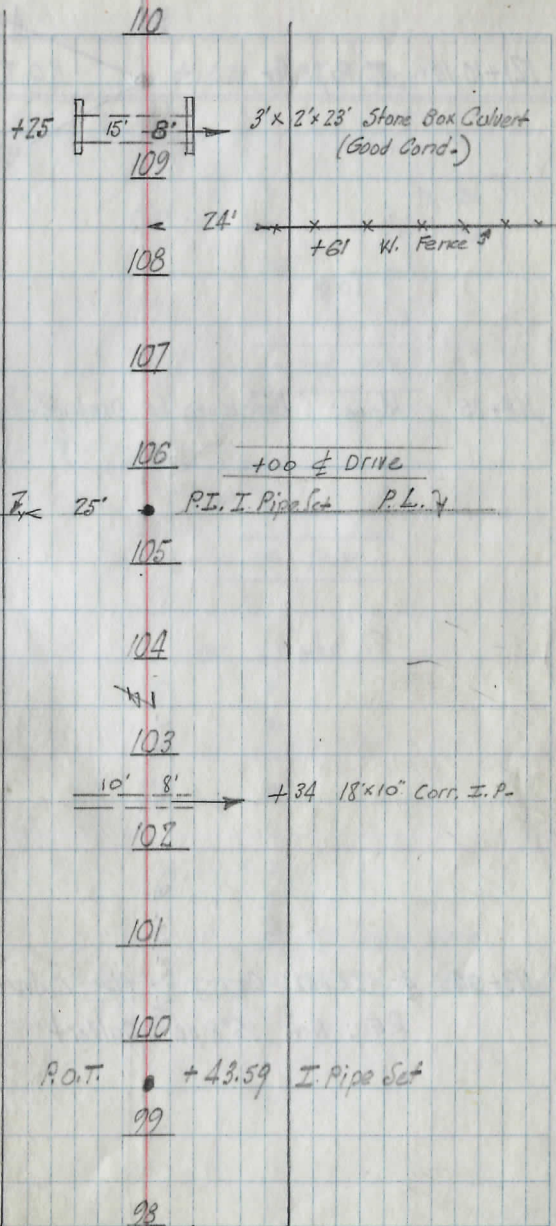 110
+25 15' 8' 3' x 2' x 23' Stone Box Culvert
(Good Cond.)
109
24'
+61 W. Fence
108
107
106
+00 ℄ Drive
25' P.I. I. Pipe Set P.L.
105
104
103
10' 8' +34 18' x 10" Corr. I. P.
102
101
100
P.O.T. +43.59 I. Pipe Set
99
98